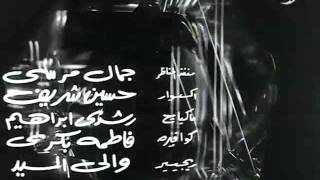 منفذ المناظر جمال مرسي
اكسسوار حسين شريف
ماكياج رشدى ابراهيم
كوافيره فاطمه بكرى
ريجيسير والى السيد